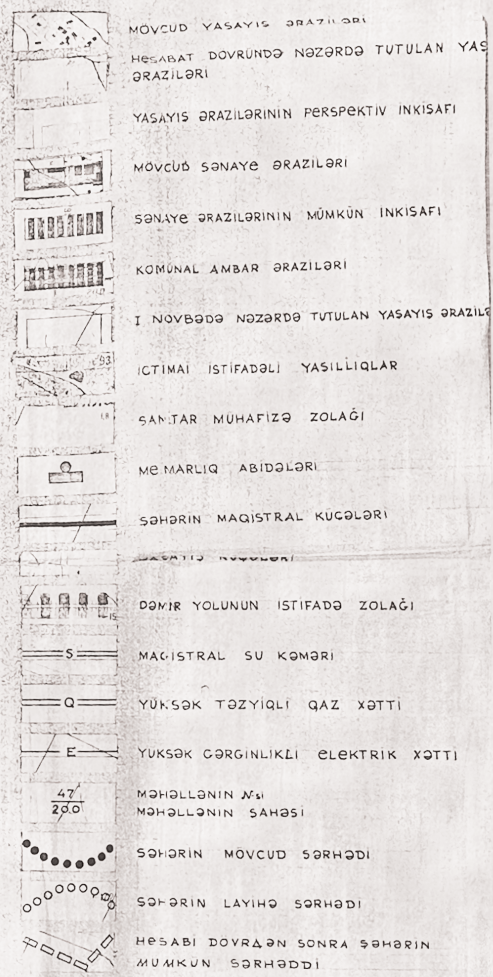 MÖVCUD YASAYIS ƏRAZILƏRI
HESABAT DOVRUNDƏ NƏZƏRDƏ TUTULAN YAS
ƏRAZILƏRI
YASAYIS ƏRAZILƏRININ PERSPEKTIV INKISAFI
MÖVCUD SƏNAYE ƏRAZILƏRI
SƏNAYE ƏRAZILƏRININ MÜMKÜN INKISAFI
KOMUNAL AMBAR ƏRAZILƏRI
I NOVBƏDƏ NƏZƏRDƏ TUTULAN YASAYIS ƏRAZILƏ
93
ICTIMAI ISTIFADƏLI YASILLIQLAR
SANITAR MUHAFIZƏ ZOLAĞI
MEMARLIQ ABIDƏLƏRI
ŞƏHƏRIN MAQISTRAL KUCƏLƏRI
DƏMIR YOLUNUN ISTIFADƏ ZOLAĞI
S MAGISTRAL SU KƏMƏRI
Q YUKSƏK TƏZYIQLI QAZ XƏTTI
E YUKSƏK GƏRGINLIKLI ELEKTRIK XƏTTI
47 MƏHƏLLƏNIN №si
200 MƏHƏLLƏNIN SAHƏSI
ŞƏHƏRIN MÖVCUD SƏRHƏDI
ŞƏHƏRIN LAYIHƏ SƏRHƏDI
HESABI DOVRDƏN SONRA ŞƏHƏRIN
MUMKUN SƏRHƏDDI